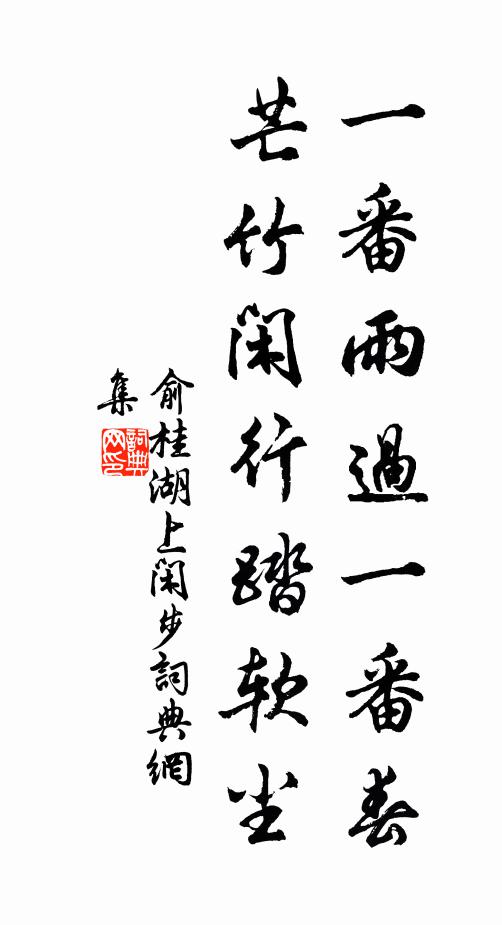 一番雨過一番春
芒竹閑行踏軟尘
俞桂湖上閑步詞典網
集
詞典
网印